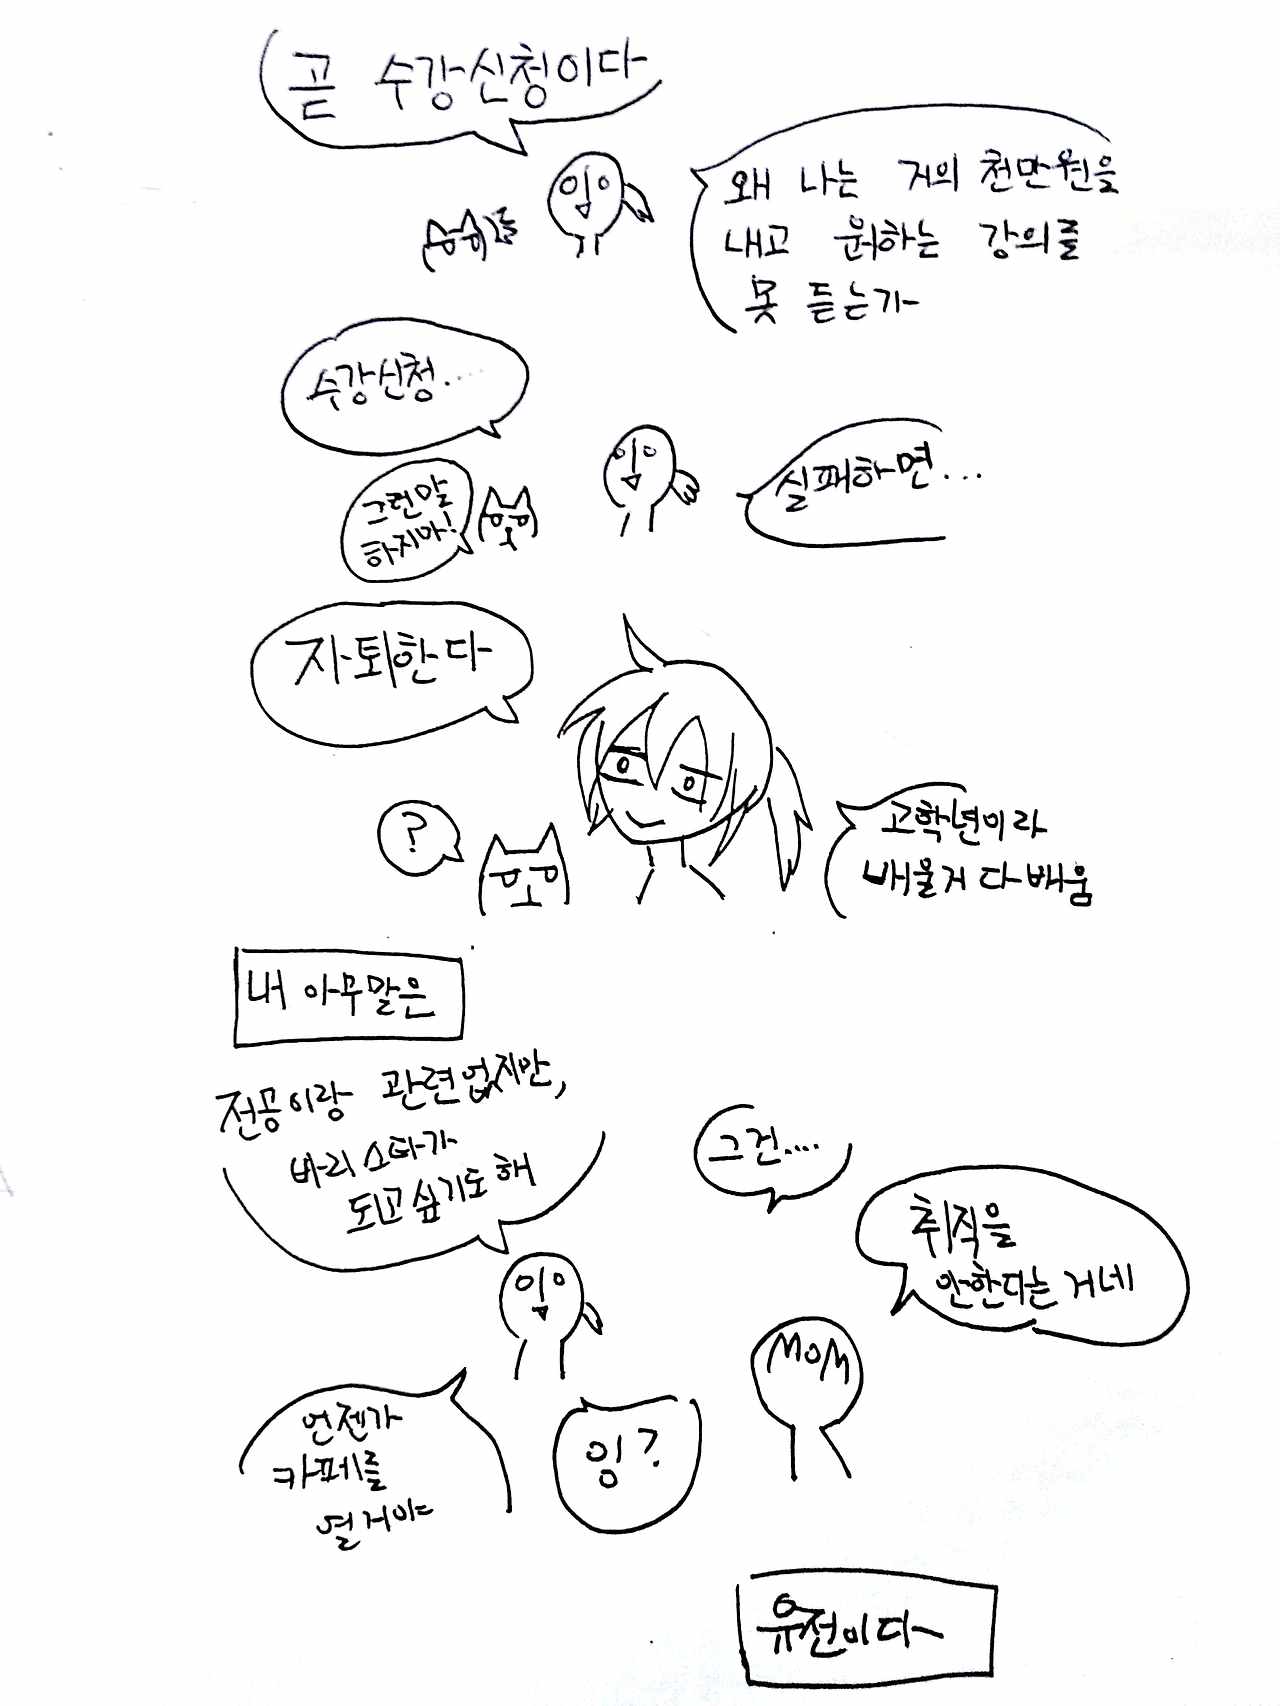 곧 수강신청이다
왜 나는 거의 천만원을
내고 원하는 강의를
못 듣는가
수강신청.....
그런말
하지마!
실패하면...
자퇴한다
?
고학년이라
배울거 다 배움
내 아무말은
전공이랑 관련없지만,
바리스타가
되고싶기도 해
그건....
취직을
안한다는 거네
MOM
언젠가
카페를
열거야
잉?
유전이다